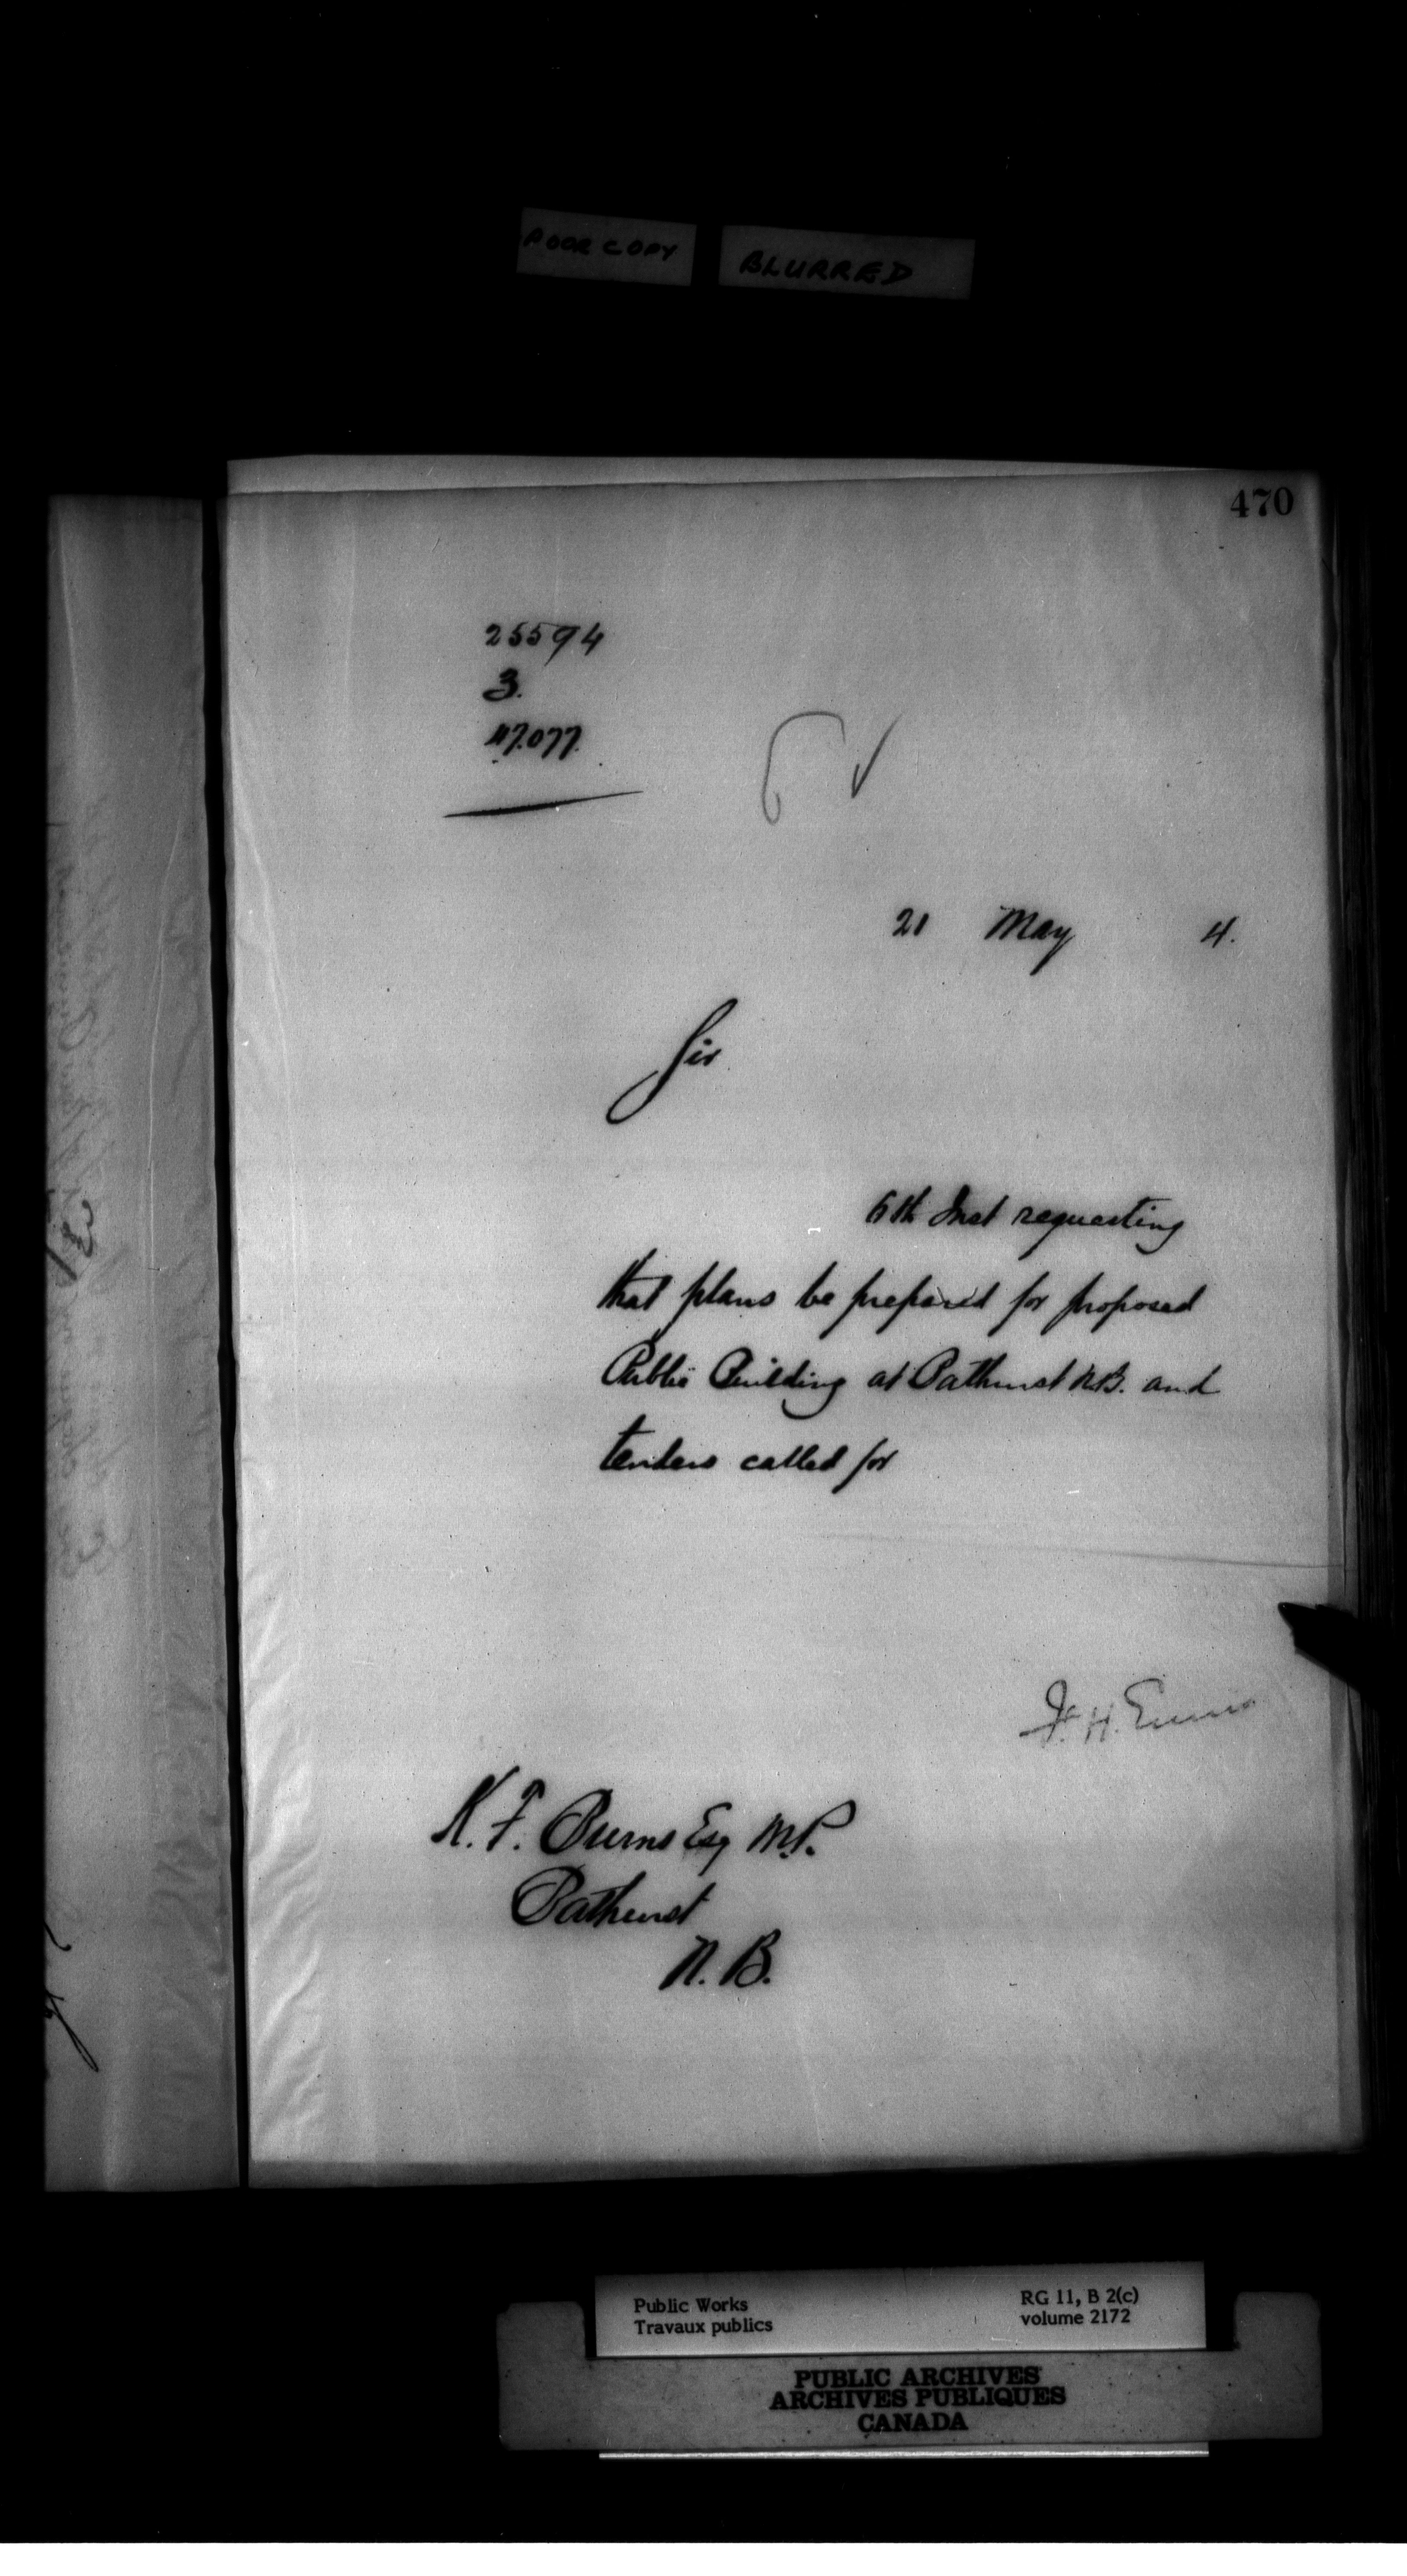 POOR COPY BLURRED
470
25594
3.
47.077.
21 May 4.
Sir
6th Inst requesting
that plans be prepared for proposed
Public Building at Bathurst N.B. and
tenders called for
F. H. Ennis
K. F. Burns Esq M.P.
Bathurst
N. B.
Public Works
Travaux publics
RG 11, B 2(c)
volume 2172
PUBLIC ARCHIVES
ARCHIVES PUBLIQUES
CANADA